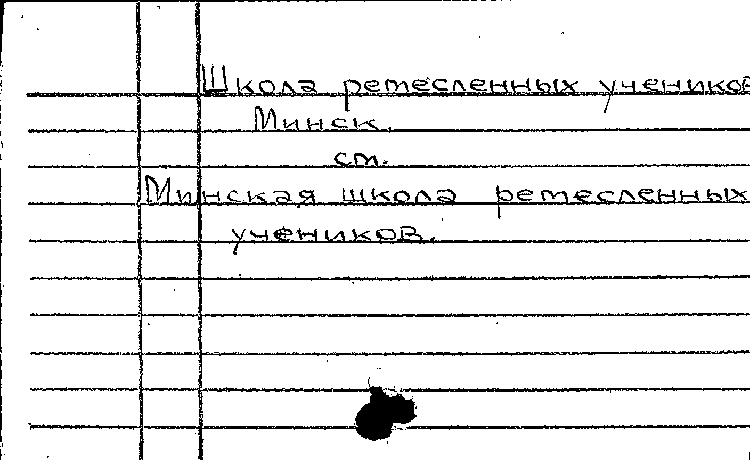 Школа ремесленных учеников
Минск.
см.
Минская школа ремесленных
учеников.